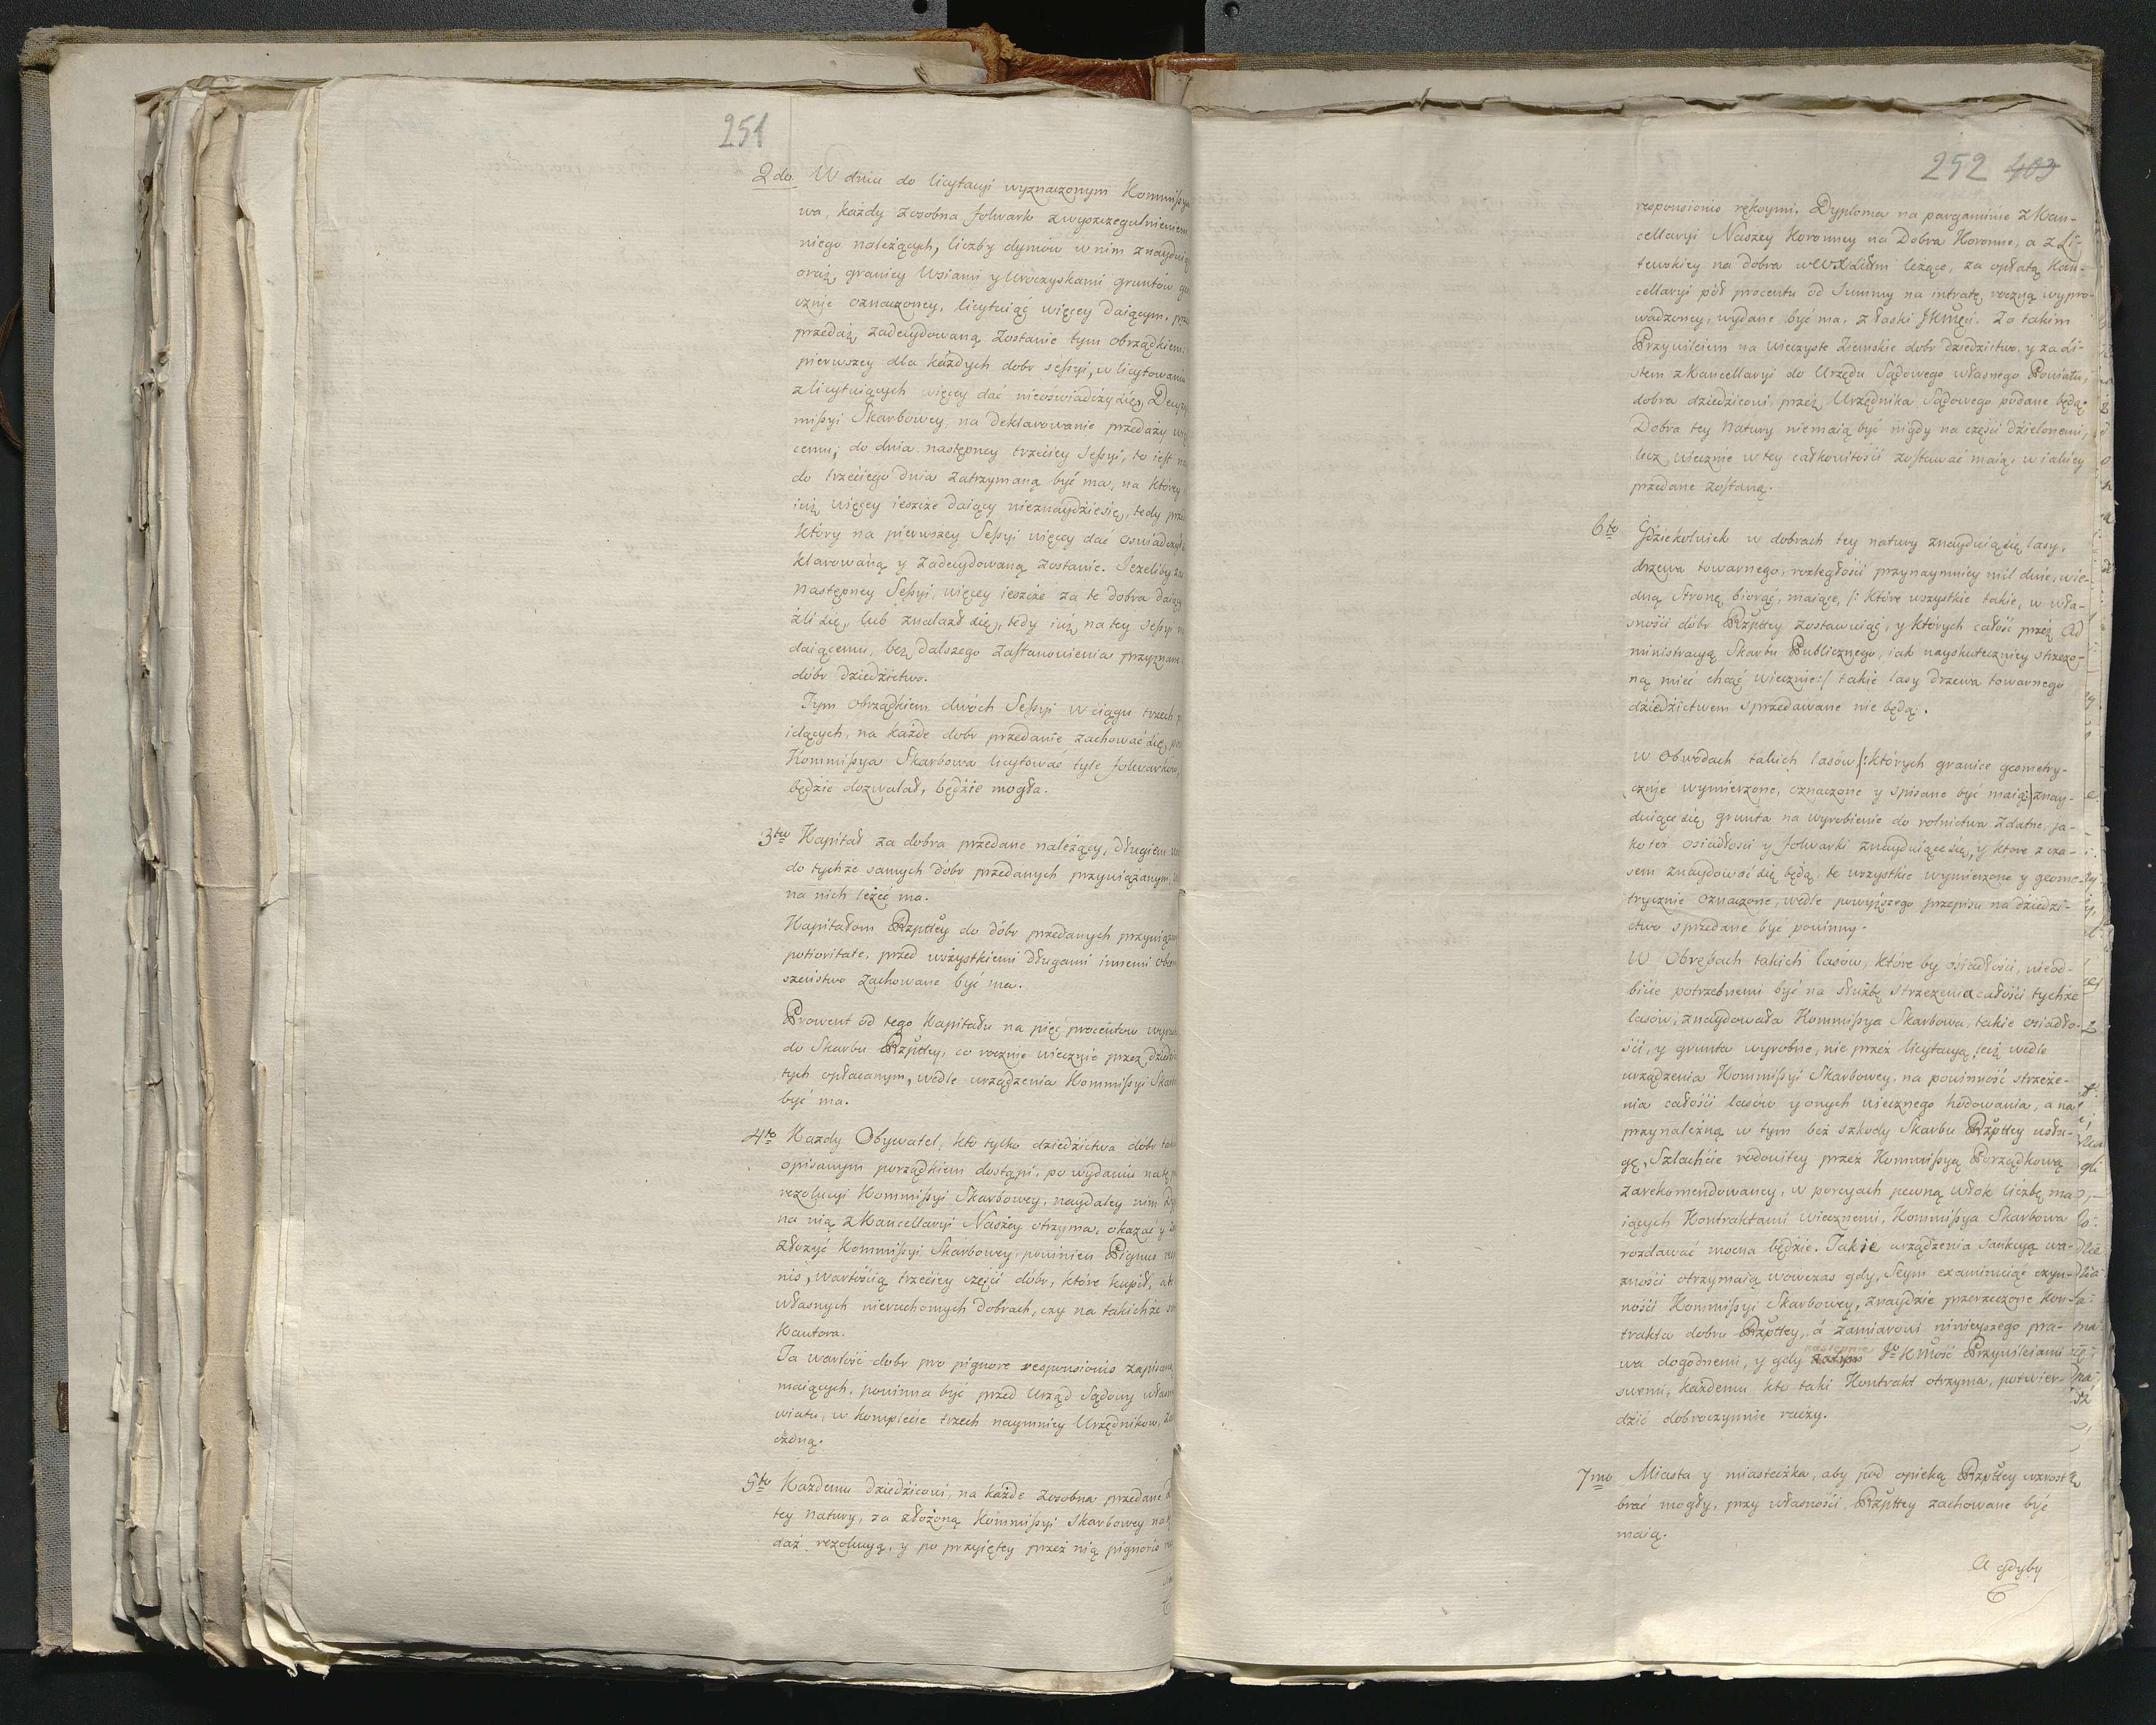 251
2do W dniu do licytacyi wyznaczonym Kommißya
wa, każdy zosobna folwark z wyszczegulnieniem
niego należących, liczby dymów w nim znayduią
oraz, granicy Wsiami y Uroczyskami gruntów
cznie oznaczoney, licytuiąć więcey daiącym,
przedaż zadecydowaną zostanie tym obrządkiem:
pierwszey dla każdych dobr seßyi, w licytowaniu
z licytuiących więcey dać nieoswiadczy się,
mißyi Skarbowey, na deklarowanie przedaży
cemu, do dnia następney trzeciey Seßyi, to iest
do trzeciego dnia zatrzymaną być ma, na którey
iuż więcey ieszcze daiący nieznaydzie się, tedy
który na pierwszey Seßyi więcey dać oswiadczył
klarowaną y zadecydowaną zostanie. Jezeliby
następney Seßyi, więcey ieszcze za te dobra daiący
źli się, lub znalazł się, tedy iuż na tey seßyi
daiącemu, bez dalszego zastanowienia przyznane
dóbr dziedzictwo.
Tym obrządkiem dwóch Seßyi w ciągu trzech
idących, na każde dobr przedanie zachować się
Kommißya Skarbowa licytować tyle folwarków,
będzie dozwalał, będzie mogła.
3tio Kapitał za dobra przedane należący, długiem
do tychże samych dóbr przedanych przywiązanym,
na nich leżeć ma.
Kapitałom Rzpttey do dóbr przedanych przywiąza
potioritate, przed wszystkiemi długami innemi
szeństwo zachowane być ma.
Prowent od tego Kapitału na pięć procentow
do Skarbu Rzpttey, co rocznie wiecznie przez
tych opłacanym, wedle urządzenia Kommißyi Skarb
być ma.
4to Kazdy Obywatel, kto tylko dziedzictwa dóbr
opisanym porządkiem dostąpi, po wydaniu na tę
rezolucyi Kommißyi Skarbowey, naydaley nim
na nią z Kancellaryi Naszey otrzyma, okazać y
złożyć Kommißyi Skarbowey, powinien Pignus
nis, wartością trzeciey części dóbr, które kupił,
własnych nieruchomych dobrach, czy na takichże
Kautora.
Ta wartość dobr pro pignore responsionis zapisane
maiących, powinna być przed Urząd Sądowy
wiatu, w komplecie trzech naymniey Urzędnikow,
czoną.
5to Kazdemu dziedzicowi, na każde zosobna przedane
tey natury, za złożoną Kommißyi Skarbowey na
daż rezolucyą, y po przyiętey przez nią pignoris
252 403
responsionis rękoymi, Dyploma na pargaminie z Kan-
cellaryi Naszey Koronney na Dobra Koronne, a z Li-
tewskiey na dobra w WXLittm leżące, za opłatą Kan-
cellaryi pół procentu od Summy na intratę roczną wypro-
wadzoney, wydane być ma, z łaski JKMci. Za takim
Przywileiem na wieczyste Ziemskie dobr dziedzictwo, y za Li-
stem z Kancellaryi do Urzędu Sądowego własnego Powiatu,
dobra dziedzicowi, przez Urzędnika Sądowego podane będą.
Dobra tey Natury niemaią być nigdy na części dzielonemi,
lecz wiecznie w tey całkowitości zostawać maią, w iakiey
przedane zostaną.
6to Gdziekolwiek w dobrach tey natury znayduią się lasy,
drzewa towarnego, rozległości przynaymniey mil dwie, wie-
dną Stronę biorąc, maiące, /: które wszystkie takie, w wła-
sności dóbr Rzpttey zostawuiąc, y których całość przez Ad
ministracyą Skarbu Publicznego, iak nayskuteczniey strzeżo-
ną mieć chcąc wiecznie :/ takie lasy drzewa towarnego
dziedzictwem sprzedawane nie będą.
W Obwodach takich lasów /: których granice geometry-
cznie wymierzone, oznaczone y spisane być maią :/ znay-
duiące się, grunta na wyrobienie do rolnictwa zdatne, ja-
koteż osiadłości y folwarki znayduiące się, y które z cza-
sem znaydować się będą, te wszystkie wymierzone y geome-
trycznie oznaczone, wedle powyższego przepisu na dziedzi-
ctwo sprzedane być powinny.
W Obrębach takich lasów, które by osiadłości, nieod-
bicie potrzebnemi być na służbę strzeżenia całości tychże
lasów, znaydowała Kommißya Skarbowa, takie osiadło-
ści, y grunta wyrobne, nie przez licytacyą lecz wedle
urządzenia Kommißyi Skarbowey, na powinność strzeże-
nia całości lasów y onych wiecznego hodowania, a na
przynależną w tym bez szkody Skarbu Rzpttey usłu-
gę, Szlachcie rodowitey przez Kommißyą Porządkową
zarekomendowaney, w porcyach pewną włok liczbę ma
iących Kontraktami wiecznemi, Kommißya Skarbowa
rozdawać mocna będzie. Takie urządzenia sankcyą wa-
żności otrzymaią wowczas gdy, Seym examinuiąc czyn-
ności Kommißyi Skarbowey, znaydzie przerzeczone Kon-
trakta dobru Rzpttey, á zamiarowi ninieyszego pra-
wa dogodnemi, y gdy następnie Jo KMość Przywileiami
swemi, każdemu kto taki Kontrakt otrzyma, potwier-
dzić dobroczynnie raczy.
7mo Miasta y miasteczka, aby pod opieką Rzpttey wzrost
brać mogły, przy własności Rzpttey zachowane być
maią.
A gdyby